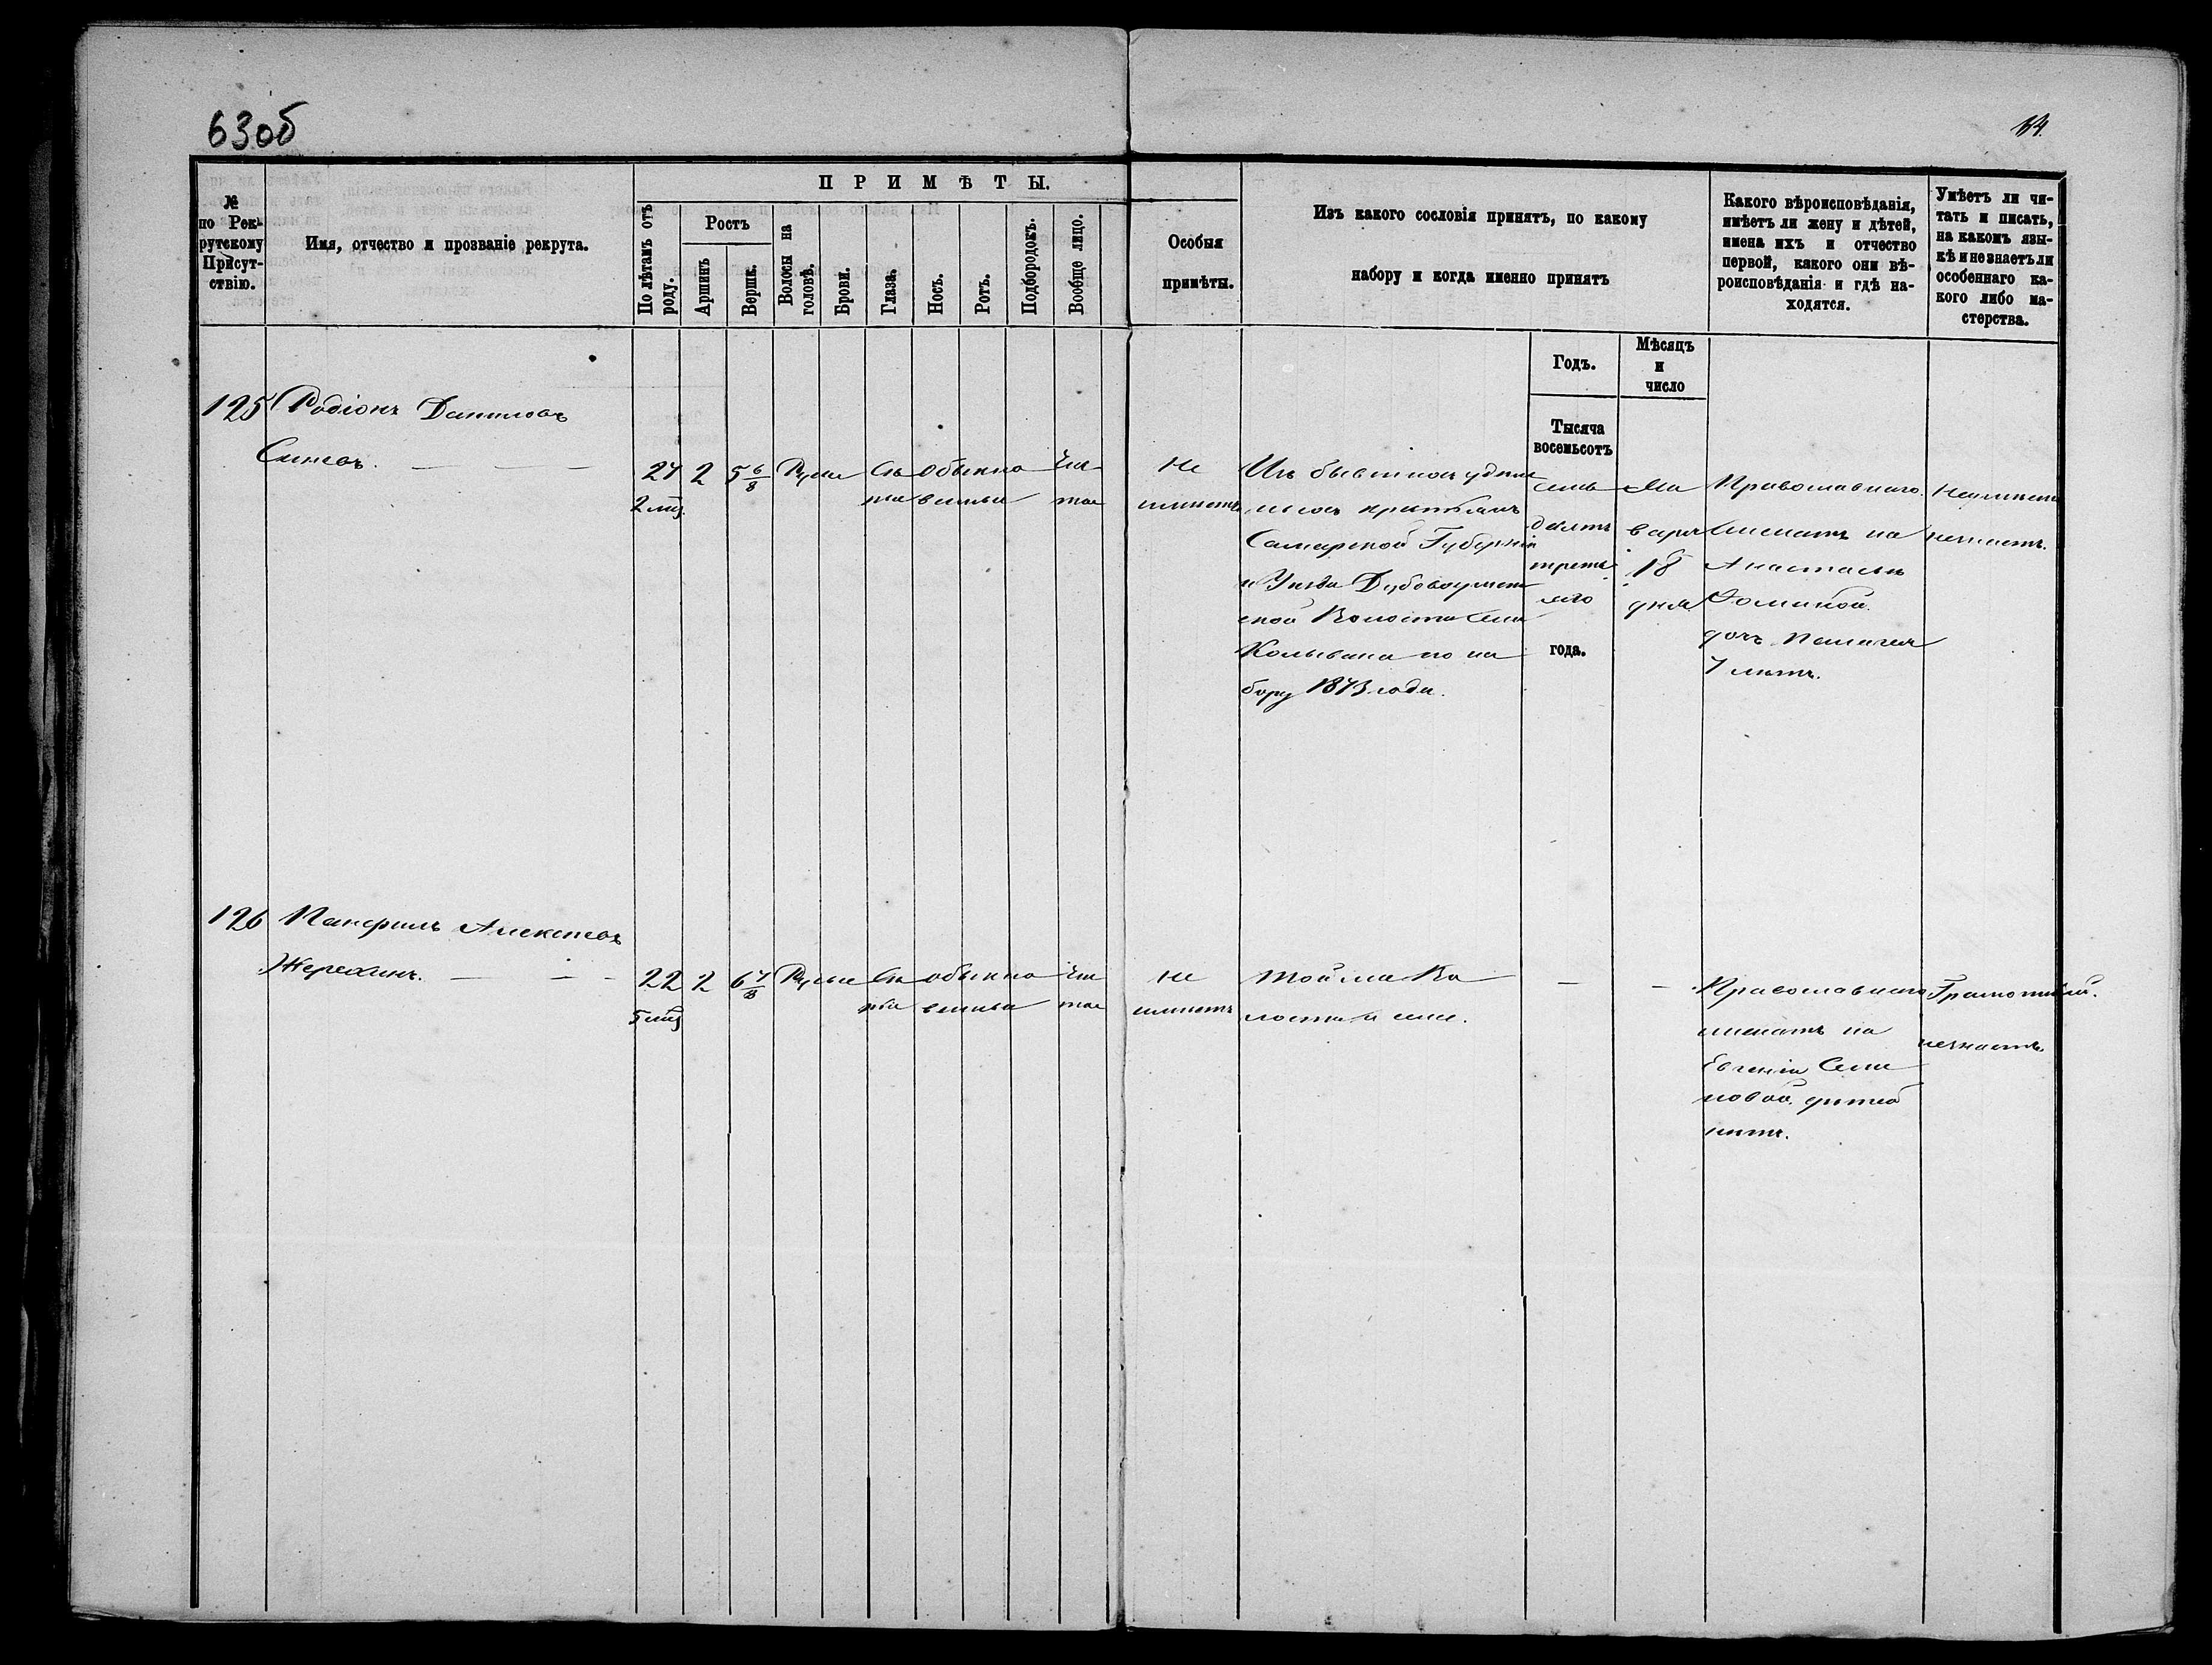 63об
14.
№
по Рек-
рутскому
Присут-
ствію.
Имя, отчество и прозваніе рекрута.
ПРИМѢТЫ.
По лѣтамъ отъ
роду.
Ростъ
Аршинъ
Вершк.
Волосы на
головѣ.
Брови.
Глаза.
Носъ.
Ротъ.
Подбородокъ.
Вообще лицо.
Особыя
примѣты.
Изъ какого сословія принятъ, по какому
набору и когда именно принятъ
Какого вѣроисповѣданія,
имѣетъ ли жену и дѣтей,
имена ихъ и отчество
первой, какого они вѣ-
роисповѣданія и гдѣ на-
ходятся.
Умѣетъ ли чи-
тать и писать,
на какомъ язы-
кѣ и не знаетъ ли
особеннаго ка-
кого либо ма-
стерства.
Годъ.
Мѣсяцъ
и
число
125
Родіонъ Даниловъ
27
2 мѣс.
2
5 6/8
Русые
Сѣ
рые
Обыкно
венные
Чис
тое
Не
имѣетъ
Изъ бывшихъ удѣль
ныхъ крестьянъ
Самарской Губерніи
и Уѣзда Дубовоумет
ской Волости села
Колывана по на
бору 1873 года.
Тысяча
восемьсотъ
семь
десятъ
треть
яго
года.
Ян
варя
18
дня
Православнаго
женатъ на
Анастасьи
Фоминой.
дочь Пелагея
7 лѣтъ.
Неумѣетъ
незнаетъ.
126
Панфилъ Алексѣевъ
Жерехинъ.
22
5 мѣс
2
6 7/8
Русые
Сѣ
рые
обыкно
венные
Чис
тое
Не
имѣетъ
Той же Во
лости и села.
Православнаго
женатъ на
Евгеніи Семе
новой. дѣтей
нѣтъ.
Грамотный.
незнаетъ.